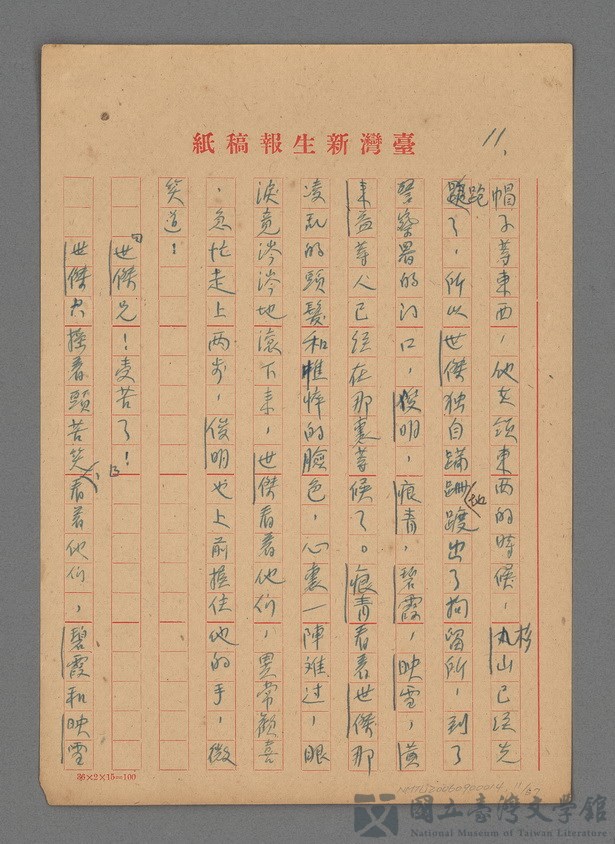 11.
臺灣新生報稿紙
帽子等東西，他去領東西的時候，杉山已經先
跑了，所以世傑独自蹣跚地踱出了拘留所，到了
警察署的门口，俊明，痕青，碧霞，映雪，黃
東益等人已經在那裏等候了。痕青看着世傑那
凌乱的頭髮和憔悴的臉色，心裏一陣难过，眼
淚竟涔涔地滾下来，世傑看着他们，異常歡喜
，急忙走上两步，俊明也上前握住他的手，微
笑道：
「世傑兄！受苦了！」
世傑只搖着頭苦笑，看着他们，碧霞和映雪
第×2×15=100
國立臺灣文學館
National Museum of Taiwan Literature